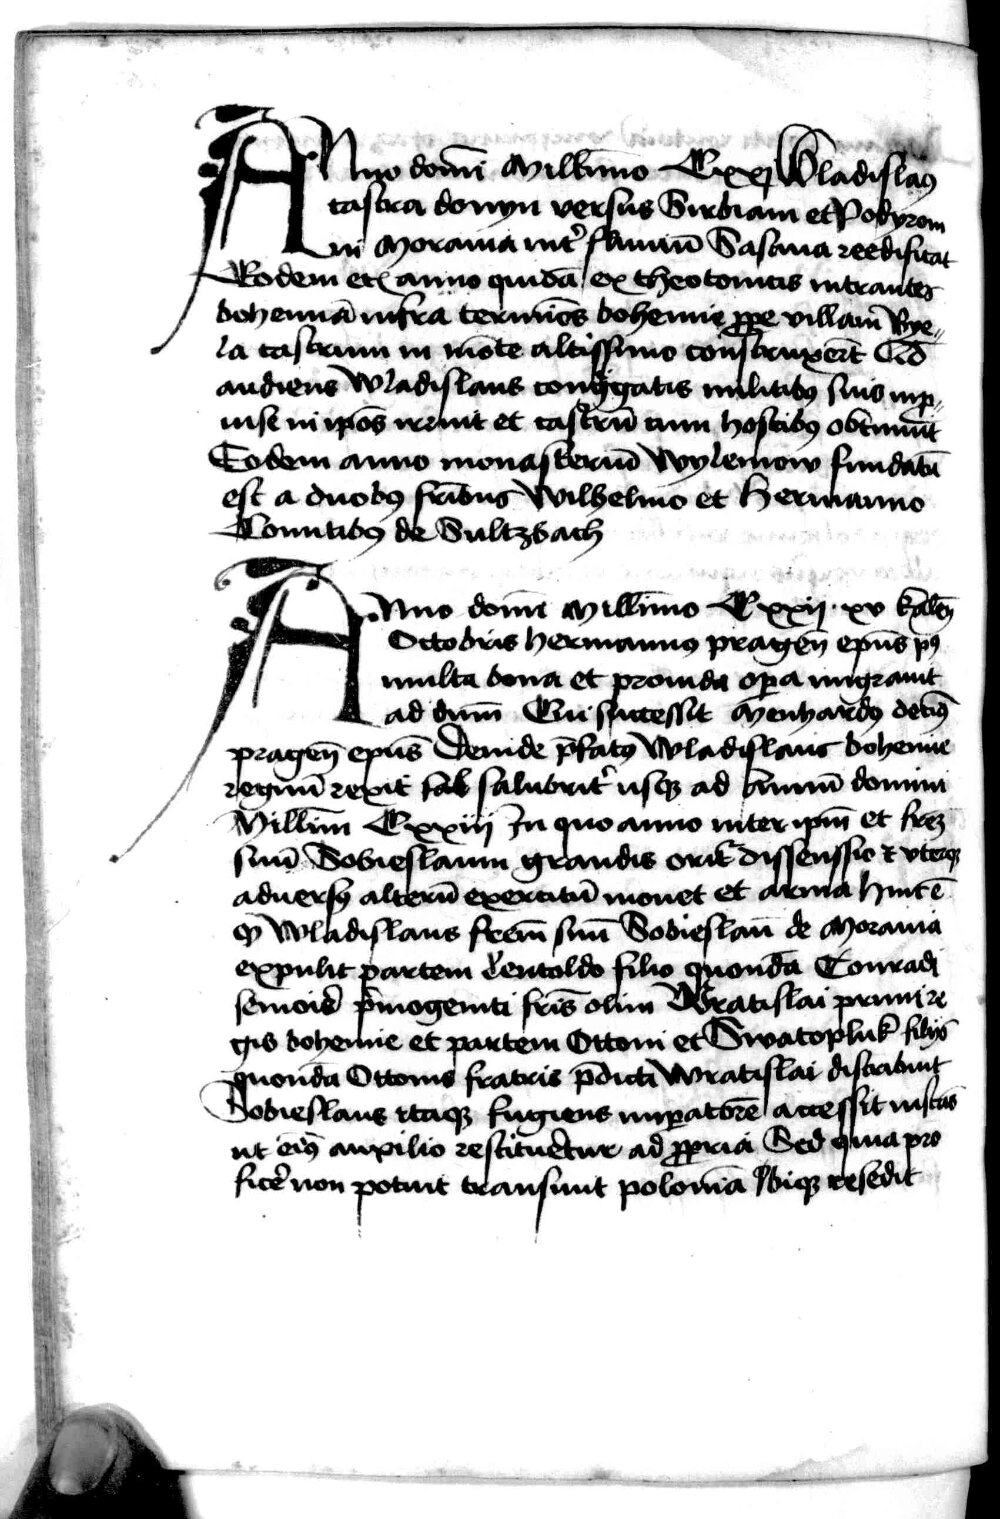 Anno domi Millimo Cxxj Wladislaus
castra donyn versus Sirbiam et Podyrom
in Morauia int' fluuiū Sasaua reedificat
Eodem et anno quidā ex theotonicis intrantes
bohemiā infra terminos bohemie prope villam Bye-
la castrum in mōte altissimo construxert Qd
audiens Wladislaus congregatis militibus suis inp-
uise in ipos irruit et castrū cum hostibus obtinuit
Eodem anno monasteriū Wylemow fundatū
est a duobus frībus Wilhelmo et Hermanno
Comitibus de Sultzbach
Anno domi Millimo Cxxij xv kalen
Octobris Hermannus pragen epus pus
multa bona et prouida opera migrauit
ad dnm Cui successit Menhardus decius
pragen epus Deinde pfatus Wladislaus bohemie
regnū rexit salubrit' usque ad annū domini
Millim Cxxiij In quo anno inter ipm et frem
suū Sobieslaum grandis orit dissenssio et uterque
aduersus alterū exercitū mouet et arma hinc ē
q Wladislaus frem suū Sobieslaū de Morauia
expulit partem Lentoldo filio quondā Conradi
semoid pmogeniti fris olim Wratislai primi re
gis bohemie et partem Ottoni et Swatopluk filijs
quondā Ottonis fratris pdicti Wratislai distribuit
Sobieslaus itaque fugiens imperatorē accessit
ut eius auxilio restitueretur ad propria Sed quia pro
ficere non potuit transiuit poloniā Ibique resedit